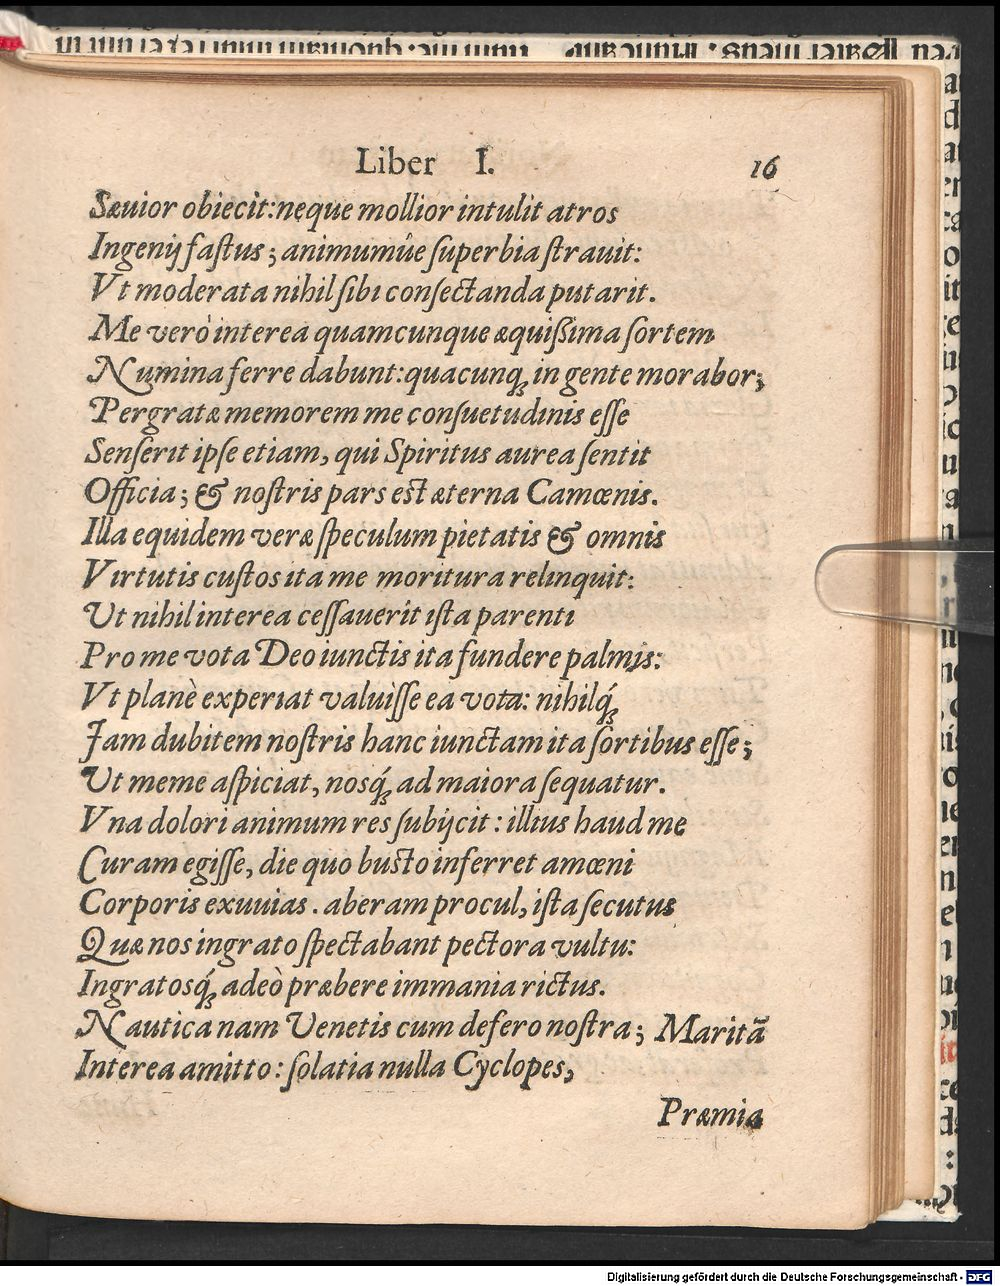 Liber I. 16
Sæuior obiecit: neque mollior intulit atros
Ingenij fastus; animumûe superbia strauit:
Vt moderata nihil sibi consectanda putarit.
Me verò interea quamcunque æquißima sortem
Numina ferre dabunt: quacunq́; in gente morabor;
Pergratæ memorem me consuetudinis esse
Senserit ipse etiam, qui Spiritus aurea sentit
Officia; & nostris pars est æterna Camœnis.
Illa equidem veræ speculum pietatis & omnis
Virtutis custos ita me moritura relinquit:
Ut nihil interea cessauerit ista parenti
Pro me vota Deo iunctis ita fundere palmis:
Vt planè experiat valuisse ea vota: nihilq́;
Jam dubitem nostris hanc iunctam ita sortibus esse;
Ut meme aspiciat, nosq́; ad maiora sequatur.
Vna dolori animum res subijcit: illius haud me
Curam egisse, die quo busto inferret amœni
Corporis exuuias. aberam procul, ista secutus
Quæ nos ingrato spectabant pectora vultu:
Ingratosq́; adeò præbere immania rictus.
Nautica nam Venetis cum defero nostra; Maritã
Interea amitto: solatia nulla Cyclopes,
Præmia
Digitalisierung gefördert durch die Deutsche Forschungsgemeinschaft - DFG